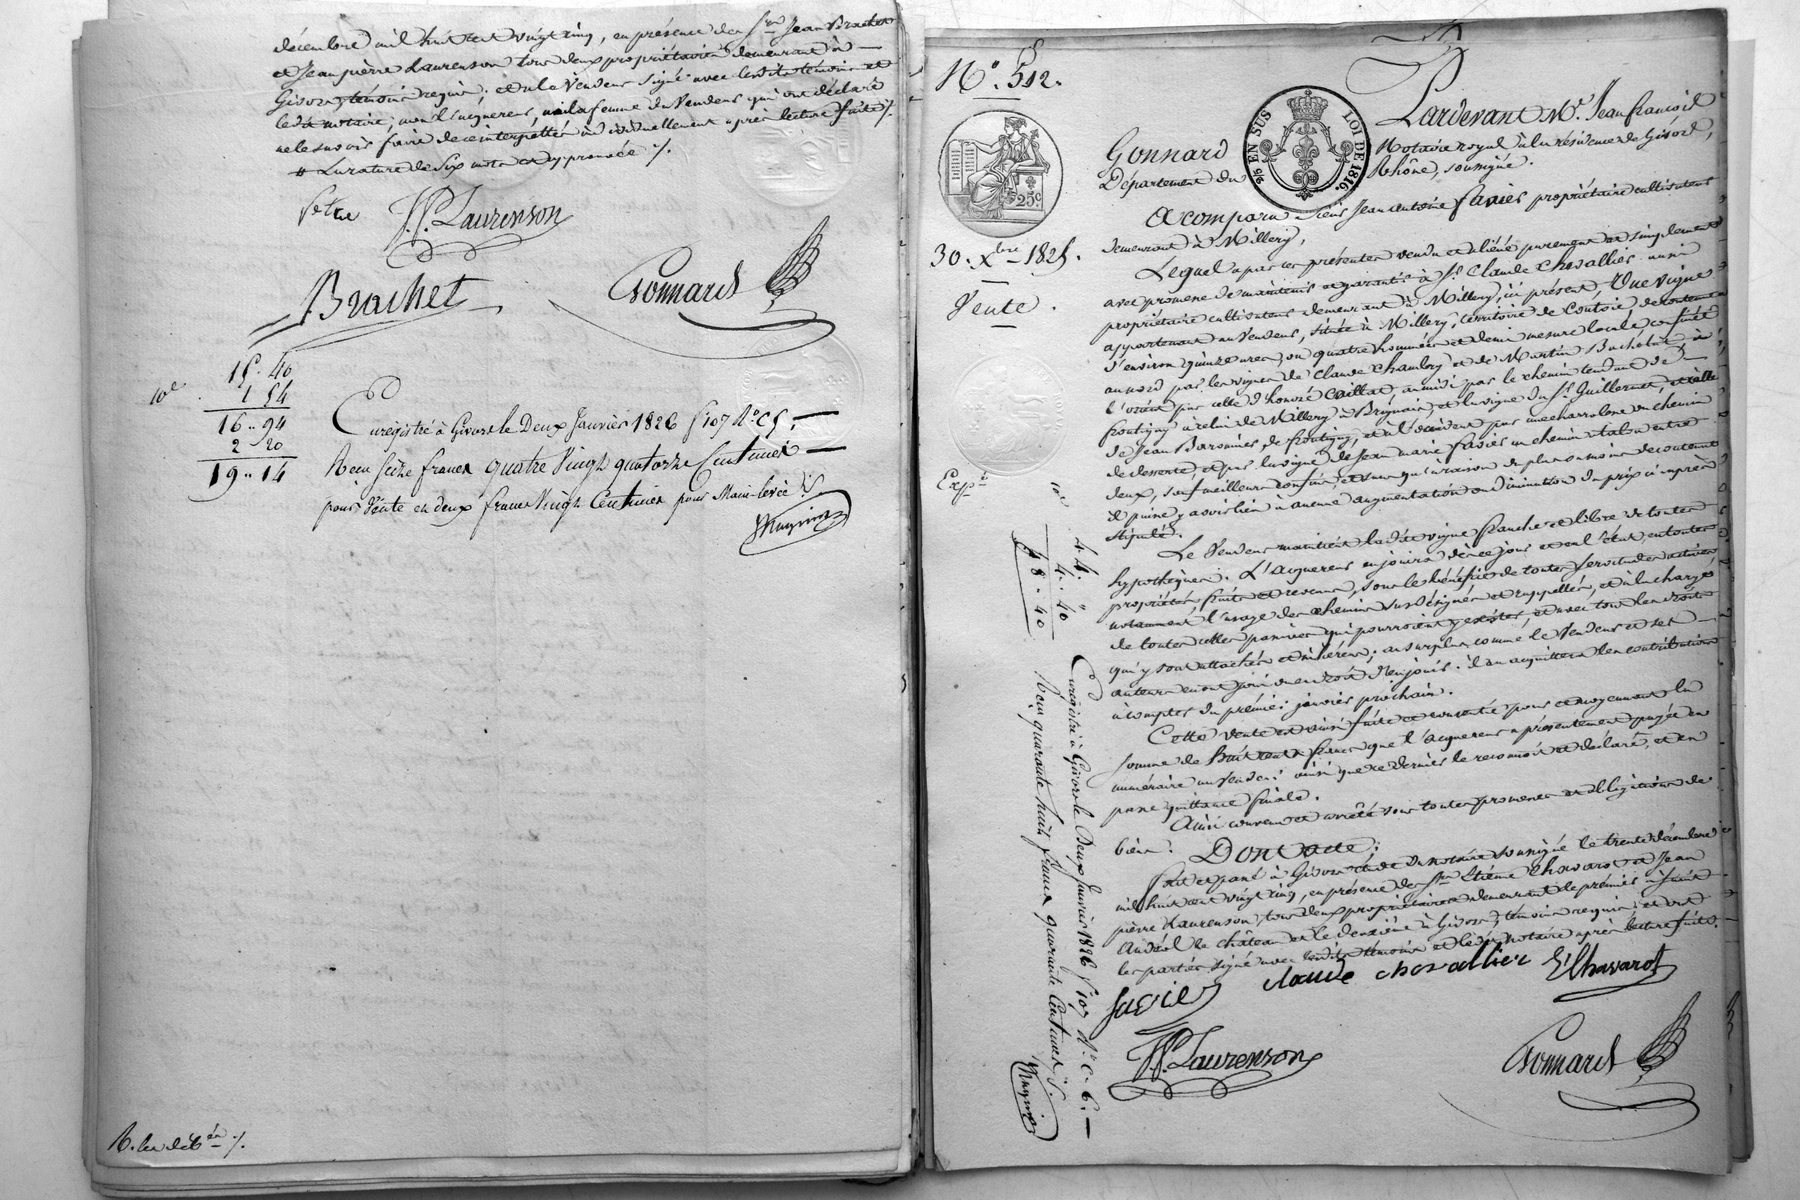 décembre mil huit cent vingt cinq, en présence des Srs Jean Brachet
et Jean pierre Laurenson tous deux propriétaires demeurant à
Givors, témoins requis; et a le Vendeur signé avec lesdits témoins et
ledit notaire, non l'acquereur, ni la femme du Vendeur qui ont déclaré
ne le savoir faire de ce interpellés individuellement après lecture faite ./.
Rature de Six mots approuvée ./.
favier
J.P. Laurenson
Brachet
Gonnard
10e
15. 40
1 54
16 .. 94
2 20
19 .. 14
Enregistré à Givors le Deux Janvier 1826 fo 107 Ro C 5,
Reçu Seize francs quatre Vingt quatorze Centimes
pour Vente et deux francs Vingt Centimes pour Main-levée ./.
No. 512.
25c.
30. Xbre 1825.
Vente.
Expée
EN SUS
LOI DE 1816.
Pardevant Me. Jean françois
Gonnard Notaire royal à la résidence de Givors,
Département du Rhône, soussigné.
A comparu Sieur Jean antoine favier propriétaire cultivateur
demeurant à Millery,
Lequel a par ces présentes vendu et aliéné purement et simplement
avec promesse de maintenir et garantir à Sr. Claude Chevallier aussi
propriétaire cultivateur demeurant à Millery, ici présent, Une vigne
appartenant au Vendeur, située à Millery, territoire de
d'environ quinze ares, ou quatre hommées et demi mesure locale confinée
au nord par les vignes de Claude Chambry et de Martin
l'orient par celle d'honoré Caillat au midi par le chemin tendant de
à celui de Millery à Brignais, et la vigne du Sr. Guillermet, et celle
de Jean et à l'occident par une charrolone ou chemin
de desserte et par la vigne de Jean marie favier un chemin entre
deux, sauf meilleurs confins, et sans qu'à raison du plus ou moins de contenue
il puisse y avoir lieu à aucune augmentation ou diminution du prix ci après
stipulé.
Le Vendeur maintient ladite vigne franche et libre de toutes
hypothèques. L'acquereur en jouira dès ce jour et en l'état, en toute
propriété, fruits et revenus, sous le bénéfice de toutes servitudes actives
notamment l'usage des chemins sus désignés et rappellés, et à la charge
de toutes celles passives qui pourraient y exister, et avec tous les droits
qui y sont attachés et inhérens; au surplus comme le Vendeur et ses
auteurs en ont joui ou eu droit d'en jouir: il en acquittera les contributions
à compter du premier janvier prochain.
Cette Vente est ainsi faite et consentie pour et moyennant la
somme de huit cents francs que l'acquereur a présentement payée en
numéraire au Vendeur ainsi que ce dernier le reconnoit et déclare, et en
passe quittance finale.
Ainsi convenu et arrêté sous toutes promesses et obligations de
biens. Dont acte:
fait et passé à Givors étude du notaire soussigné le trente décembre
mil huit cent vingt cinq, en présence des Srs Etienne Chavarot et Jean
pierre Laurenson, tous deux propriétaires demeurant le premier à Saint
Andéol le château et le deuxième à Givors, témoins requis; et ont
les parties signé avec lesdits témoins et ledit notaire après lecture faite.
favier
claude chevallier
E. Chavarot
J.P. Laurenson
Gonnard
10e
44. "
4. 40
48. 40
Enregistré à Givors le Deux Janvier 1826 fo 107 Ro C. 6.
Reçu quarante huit francs quarante Centimes ./.